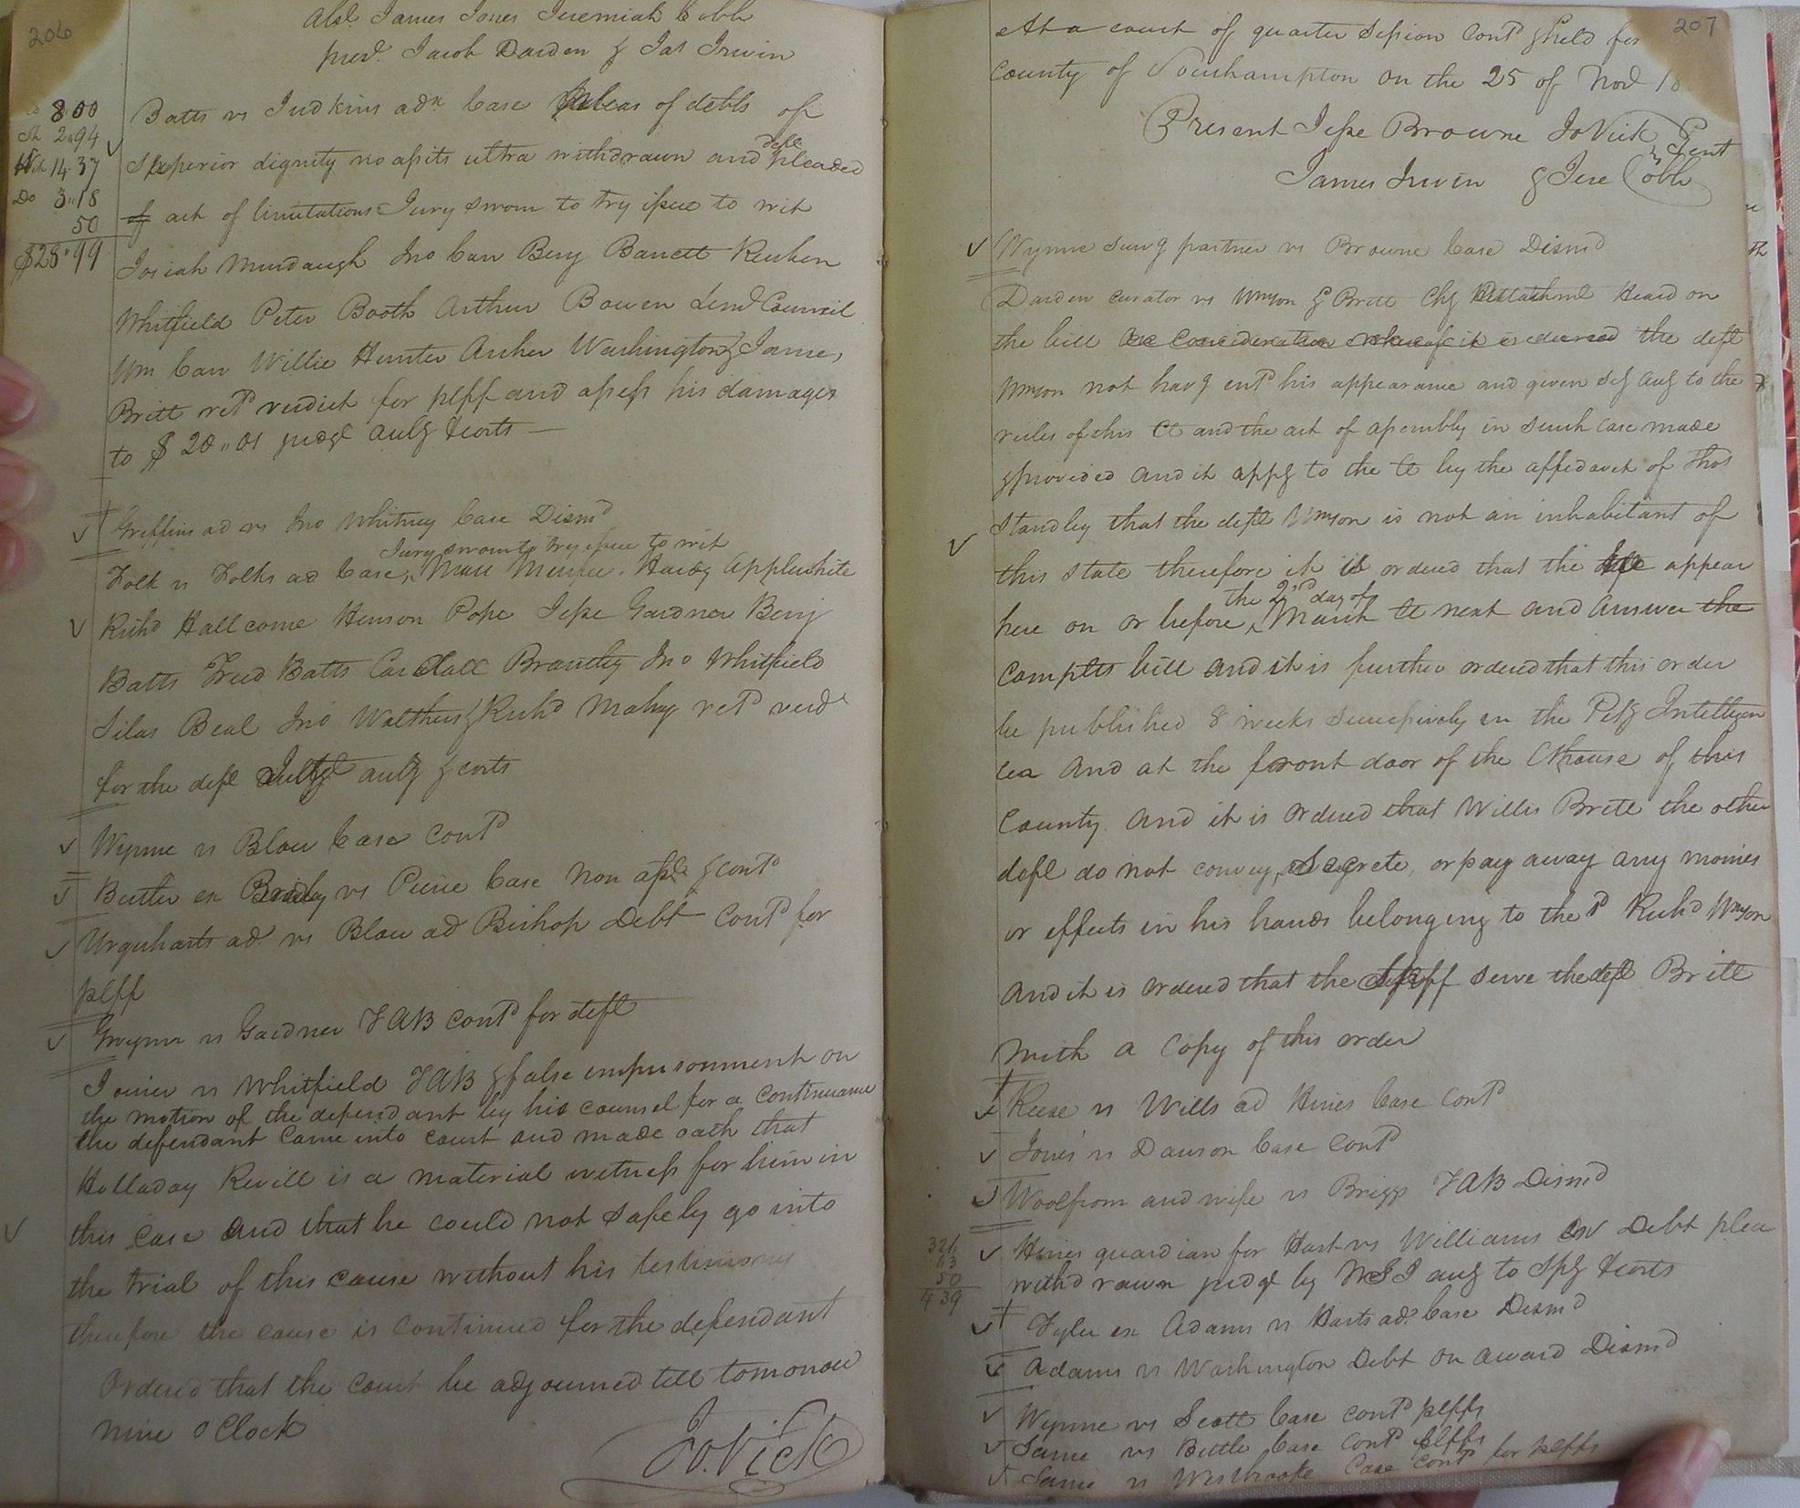 206
Abst. James Jones Jeremiah Cobb
prest. Jacob Darden & Jas Irwin
8.00
2.94
14.37
Do 3.18
50
$28.99
Batts vs Judkins adr Case pleas of debts of
Superior dignity no assits ultra withdrawn and deft pleaded
act of limitations Jury sworn to try issue to wit
Josiah Murdaugh Jno Carr Benj Barrett Reuben
Whitfield Peter Booth Arthur Bowen Lemd Council
Wm Carr Willie Hunter Archer Washington & James
Britt retd verdict for plff and assess his damages
to $ 20..01 judgt aulg & costs
Griffins ad vs Jno Whitney Case Dismd
Jury sworn to try issue to wit
Folk vs Folks ad Case, Hardy Applewhite
Richd Hallcome Henson Pope Jesse Gardner Benj
Batts Fred Batts Brantley Jno Whitfield
Silas Beal Jno Walthus & Richd Mahry retd verdt
for the deft aulg & costs
Wynne vs Blow Case contd
Butler ex vs Case Non asst & contd
Urquharts ad vs Blow ad Bishop Debt contd for
plff
Gwynn vs Gardner TAB contd for deft
Joiner vs Whitfield TAB & false imprisonment on
the motion of the defendant by his counsel for a continuance
the defendant came into court and made oath that
Holladay Revill is a material witness for him in
this case and that he could not safely go into
the trial of this cause without his testimony
therefore the cause is continued for the defendant
Ordered that the court be adjourned till tomorrow
nine o Clock
Jo. Vick
207
At a court of quarter Session contd & held for
County of Southampton on the 25 of Novd 18
Present Jesse Browne Jo Vick Gent
James Irwin & Jere Cobb
Wynne surv g partner vs Browne Case Dismd
Darden curator vs Wmson & Britt Chy Attachmt Heard on
the bill on consideration whereof it is decreed the deft
Wmson not havg entd his appearance and given scy aulg to the
rules of this Ct and the act of assembly in such case made
& provided and it appg to the Ct by the affidavit of Thos
Standley that the deft Wmson is not an inhabitant of
this state therefore it is ordered that the deft appear
the 2nd day of
here on or before March Ct next and answer the
complts bill and it is further ordered that this order
be published 8 weeks successively in the Petg Intelligen
cea And at the front door of the Cthouse of this
County. And it is ordered that Willis Britt the other
deft do not convey, Secrete, or pay away any monies
or effects in his hands belonging to the sd Richd Wmson
And it is ordered that the serve the deft Britt
with a copy of this order
Reese vs Wills ad Hines Case contd
Jones vs Dawson Case contd
Woolfrom and wife vs Briggs TAB Dismd
326
63
50
4 39
Hines guardian for Hart vs Williams Debt plea
withdrawn judgt by aulg to Spy & costs
Tyler ex Adams vs Harts ad. Case Dismd
Adams vs Washington Debt on award Dismd
Wynne vs Scott Case contd plffs
Same vs Bittle Case contd plffs
Same vs Westbrooke Case contd for plffs